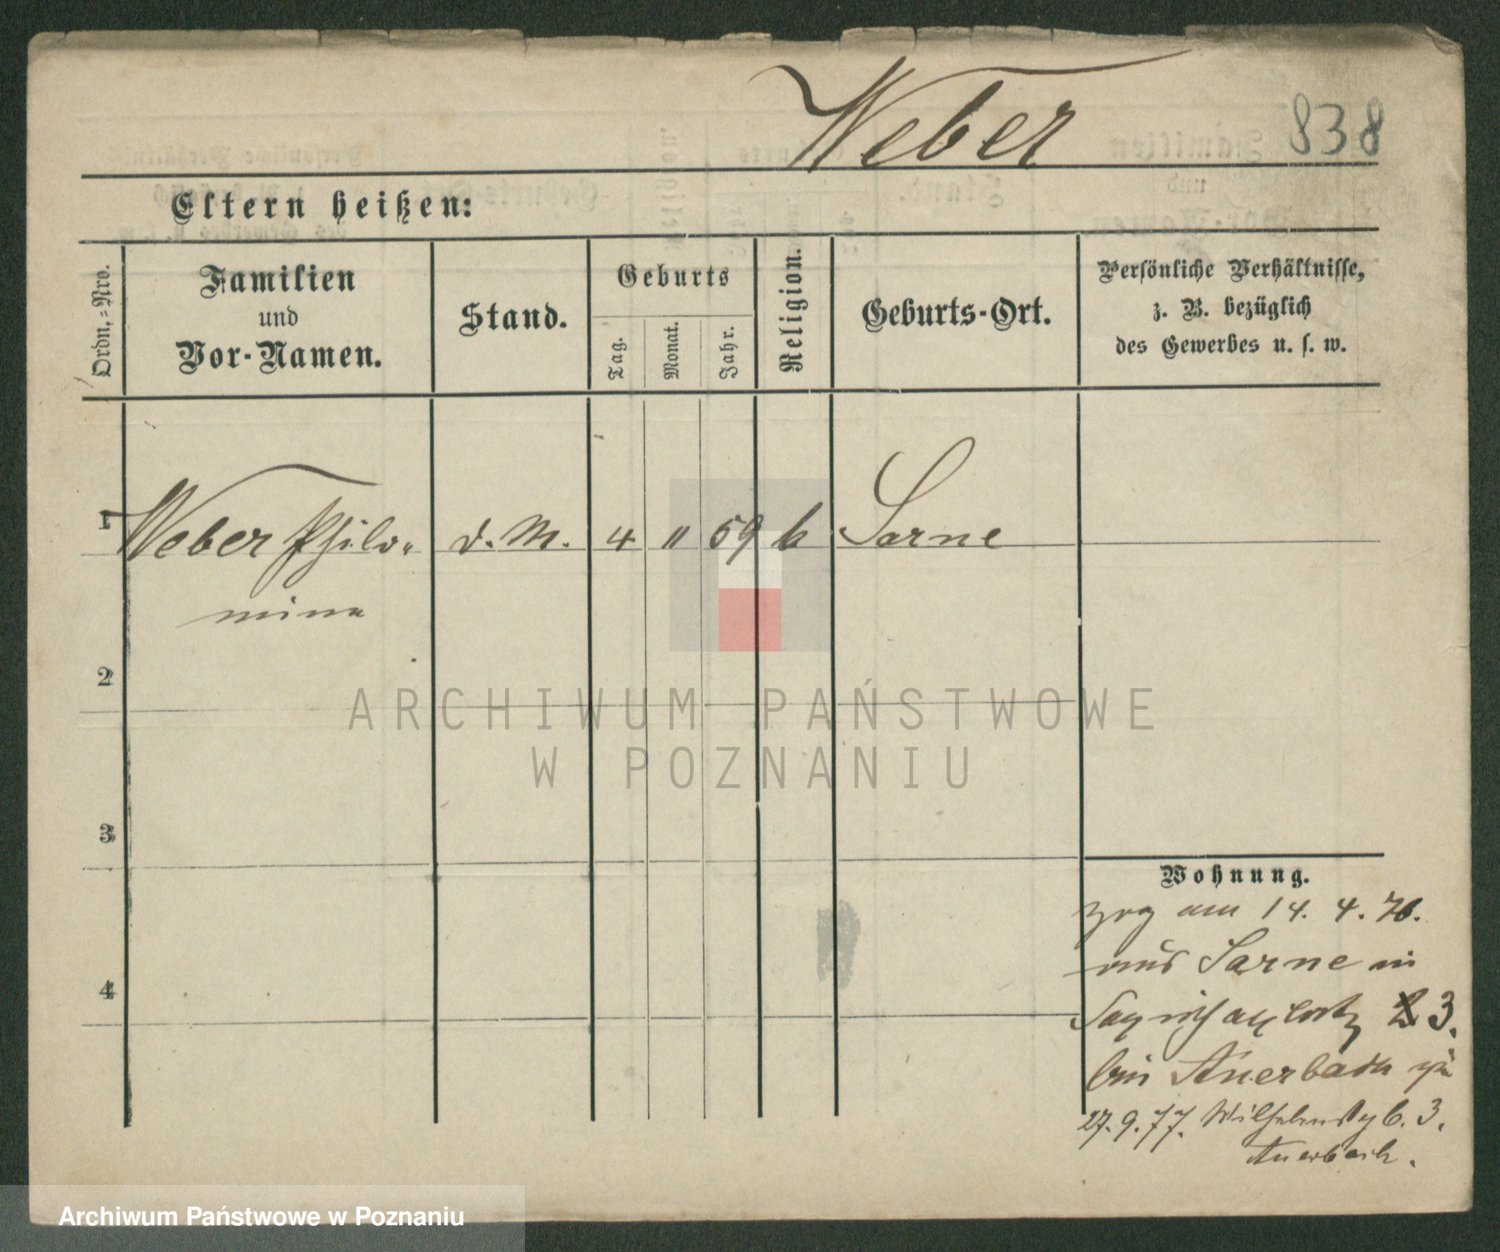 Weber 838
Eltern heißen:
Ordn.-Nro.
Familien
und
Vor-Namen.
Stand.
Geburts
Tag.
Monat.
Jahr.
Religion.
Geburts-Ort.
Persönliche Verhältnisse,
z. B. bezüglich
des Gewerbes u. s. w.
1 Weber Philo- d. M. 4 11 59 k Sarne
mina
2
3
4
Wohnung.
zog am 14. 4. 76.
aus Sarne in
3.
bei Auerbach
27. 9. 77. Wilhelmstr. 3.
Auerbach.
ARCHIWUM PAŃSTWOWE
W POZNANIU
Archiwum Państwowe w Poznaniu